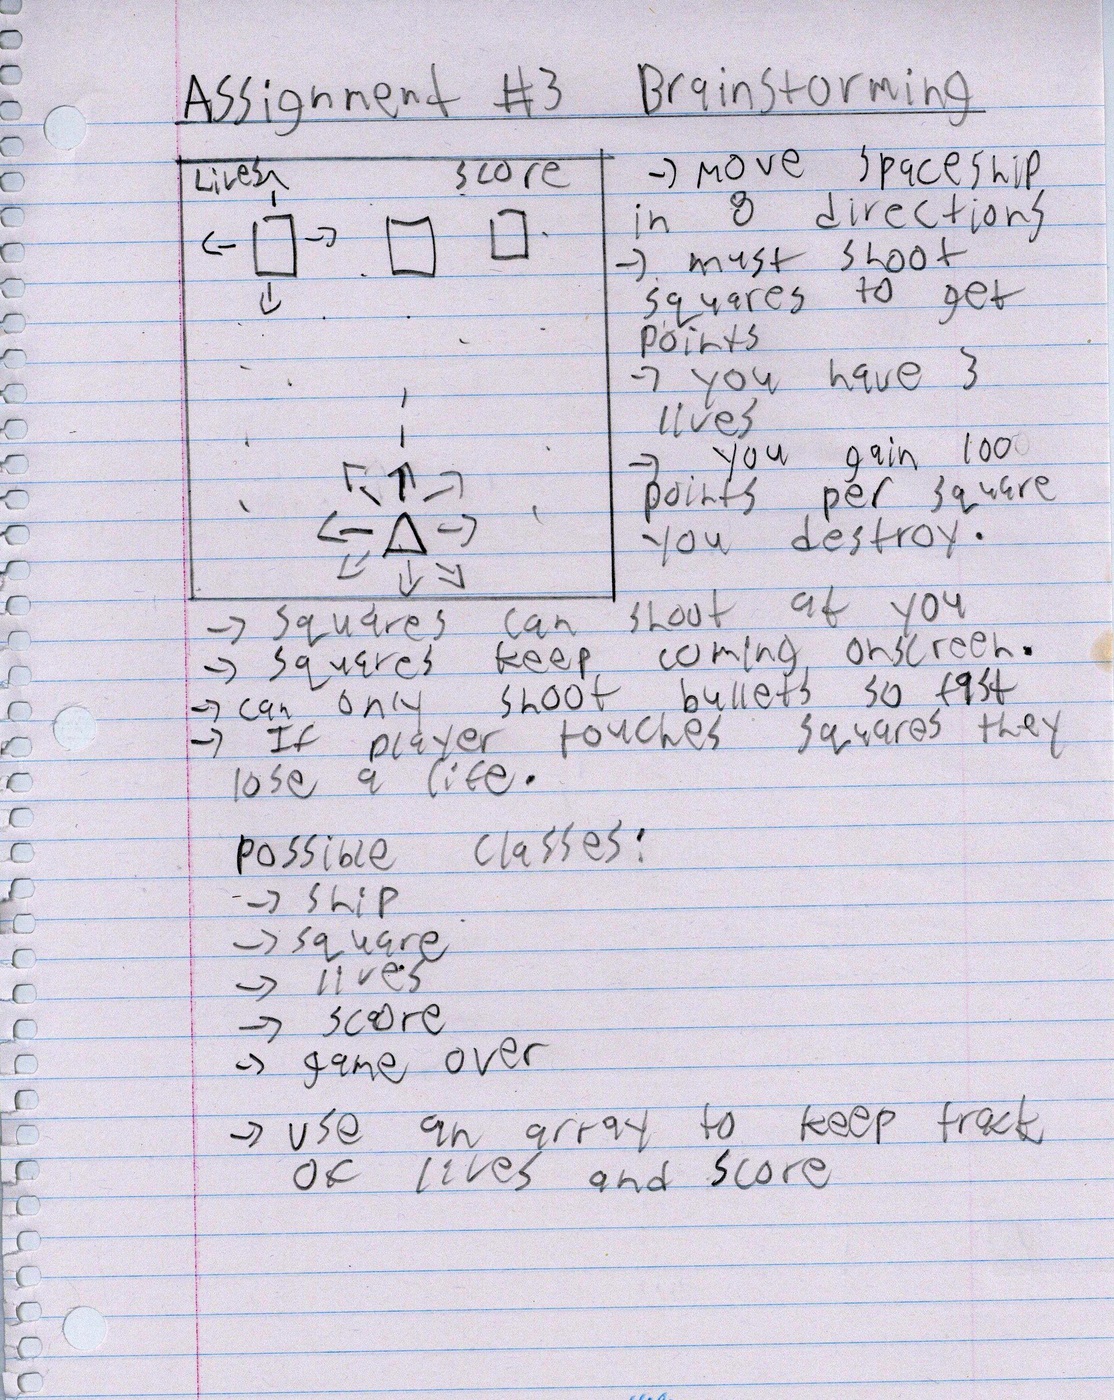 Assignment #3 Brainstorming
Lives
score
→ move spaceship
in 8 directions
→ must shoot
squares to get
points
→ you have 3
lives
→ you gain 1000
points per square
you destroy.
→ squares can shoot at you
→ squares keep coming onscreen.
→ can only shoot bullets so fast
→ If player touches squares they
lose a life.
possible classes:
→ ship
→ square
→ lives
→ score
→ game over
→ use an array to keep track
of lives and score